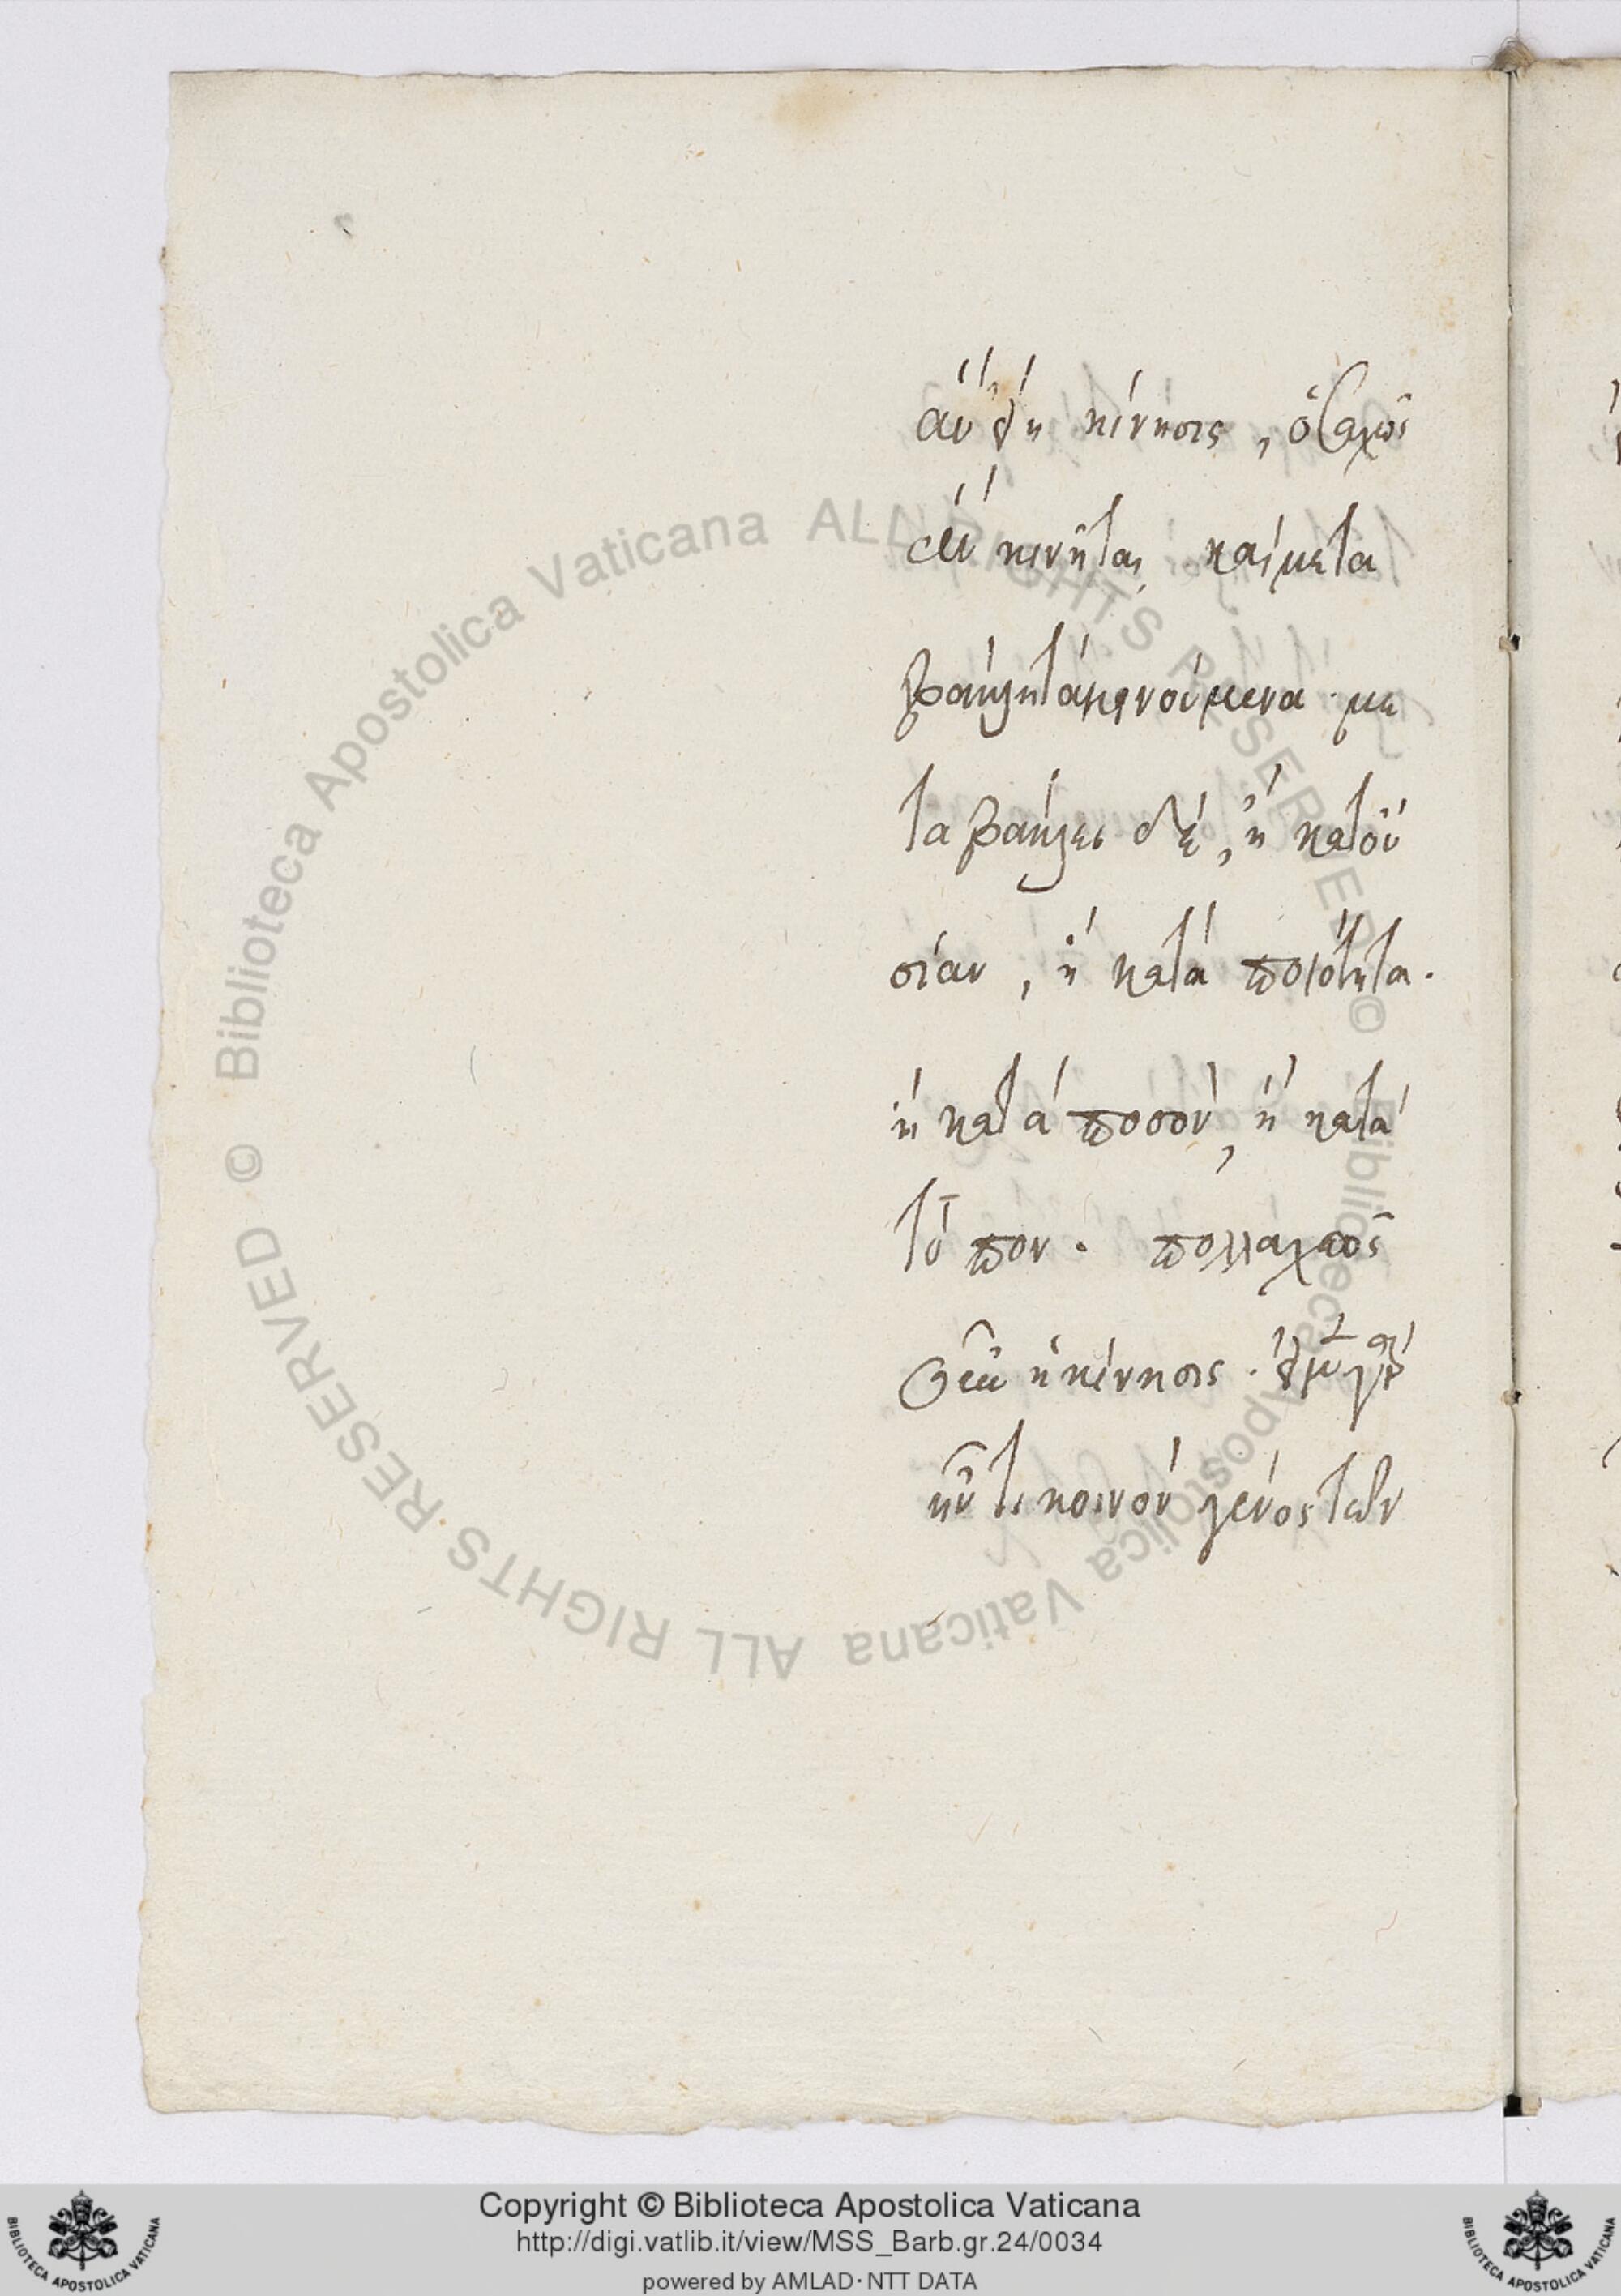 ἂν εἴη κίνησις, ὁσαχῶς
ἂν κινῆται καὶ μετα
βάλλῃ τὰ κινούμενα με
ταβάλλει δὲ, ἢ κατ' οὐ
σίαν, ἢ κατὰ ποιότητα.
ἢ κατὰ ποσὸν, ἢ κατὰ
τόπον. πολλαχῶς
ἡ κίνησις.
ἦν τι κοινὸν γένος τῶν
© Biblioteca Apostolica Vaticana ALL RIGHTS RESERVED © Biblioteca Apostolica Vaticana ALL RIGHTS RESERVED
Copyright © Biblioteca Apostolica Vaticana
http://digi.vatlib.it/view/MSS_Barb.gr.24/0034
powered by AMLAD·NTT DATA
BIBLIOTECA APOSTOLICA VATICANA
BIBLIOTECA APOSTOLICA VATICANA